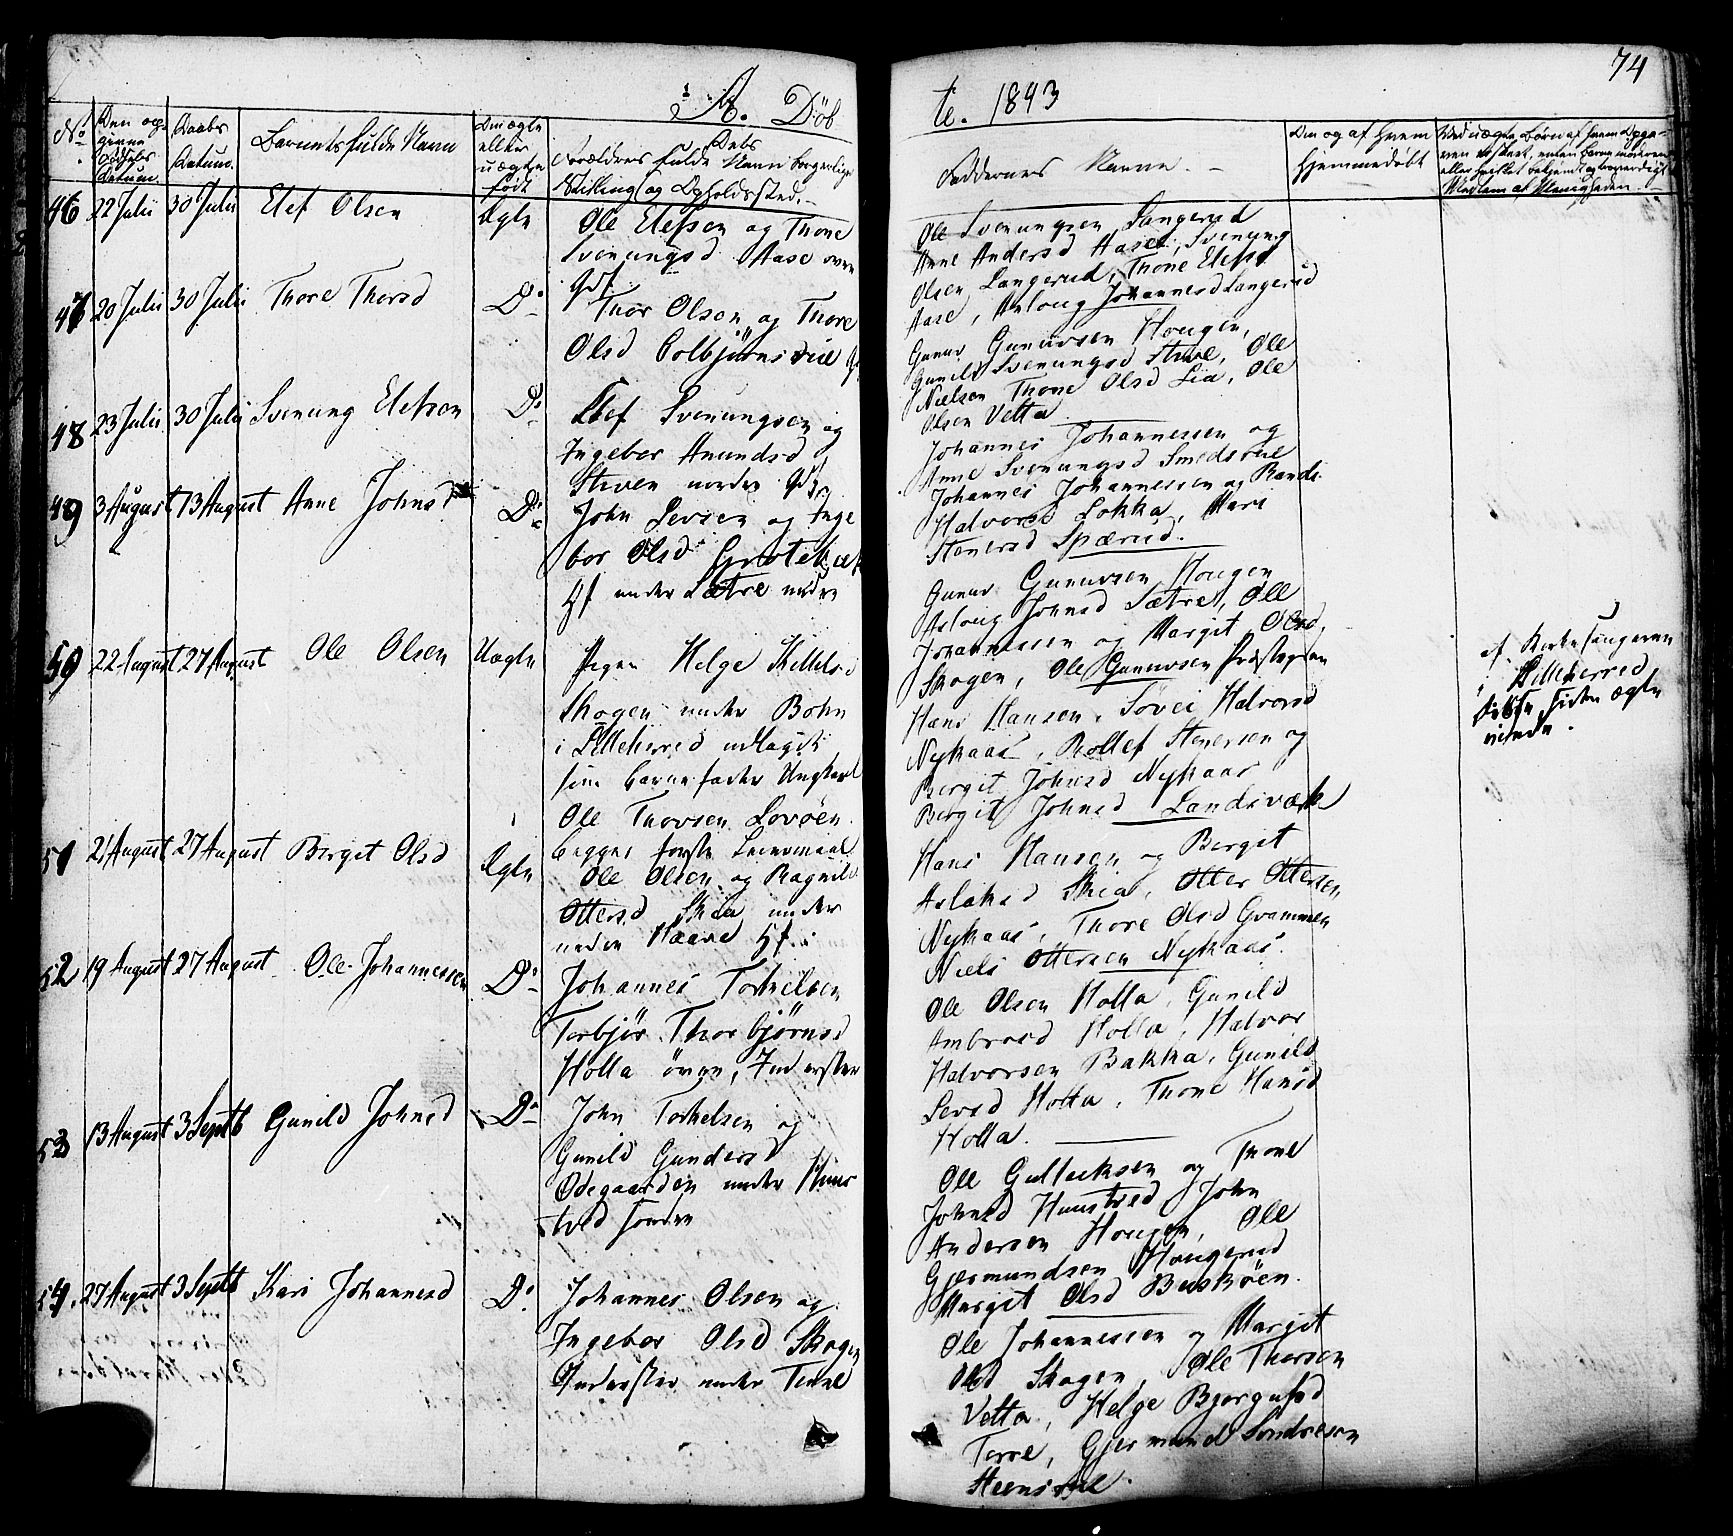 74
A. Döb
te. 1843
No.
Den op-
givne
Födsels
Datum.
Daabs
Datum.
Barnets fulde Navn
Om ægte
eller
uægte
født
Dets
Forældres fulde Navn borgerlige
Stilling og Opholdssted.
Faddernes Navne.
Om og af hvem
hjemmedøbt
46 22 Julii 30 Julii Elef Olsen Ægte
Ole Elefsen og Thone
Svenungsd Aase övre
Gf.
Ole Svenungsen Langerud
Anne Andersd Aase, Svenung
Olsen Langerud, Thone Elefsd
Aase, Asloug Johannesd Langerud
47 20 Julii 30 Julii Thore Thorsd Do
Thor Olsen og Thore
Olsd Colbjörnsrue
Gunuv Gunuvsen Hougen,
Gunild Svenungsd Stive, Ole
Nielsen Thone Olsd Lia, Ole
Olsen Vetta
48 23 Julii 30 Julii Svenung Elefsen Do
Elef Svenungsen og
Ingebor Amundsd
Stiven nordre
Johannes Johannessen og
Anne Svenungsd Smedsrue
Johannes Johannessen og Randi
Halvorsd Lokka, Mari
Stenersd Spærud.
49 3 August 13 August Anne Johnsd Do
John Levsen og Inge
bor Olsd
Hf under Sætre nedre
Gunuv Gunuvsen Hougen
Asloug Johnsd Sætre, Ole
Johannessen og Margit Olsd
Skogen, Ole Gunuvsen
50 22 August 27 August Ole Olsen Uægte
Pigen Helge Kittelsd
Skogen under Bohn
i Lilleherred udlagt
sin Barnefader Ungkarl
Ole Thovsen Lovöen
begges første Leiermaal
Hans Hansen, Sövei Halvorsd
Nykaas, Rollef Stenersen og
Bergit Johnsd Nykaas
Bergit Johnsd Landsværk
af Kirkesangeren
i Lilleherred
siden ægte
viede.
51 21 August 27 August Berget Olsd Ægte
Ole Olsen og Ragnild
Ottersd Skia under
nedre Haave Hf.
Hans Hansen og Bergit
Aslaksd Skia, Otter Ottersen
Nykaas, Thore Olsd Grammen
Niels Ottersen Nykaas.
52 19 August 27 August Ole Johannessen Do
Johannes Torkelsen
Torbjör Thorbjörnsd
Holla övre, Inderster
Ole Olsen Holla, Gunild
Ambrosd Holla, Halvor
Halvorsen Bakka, Gunild
Levsd Holla, Thone Hansd
Holla.
53 13 August 3 Septb Gunild Johnsd Do
John Torkelsen og
Gunild Gundersd
Ödegaarden under Huns
tved söndre
Ole Gulliksen og Thone
Johnsd Hunstved John
Andersen Hougen, Ole
Gjermundsen Hougerud
Margit Olsd Busköen.
54. 27 August 3 Septb Kari Johannesd Do.
Johannes Olsen og
Ingebor Olsd Skogen
Inderster under Tenne
Ole Johannessen og Margit
Olsd Skogen, Ole Thorsen
Vetta, Helge Bjorgufsd
Torre, Gjermund Sondresen